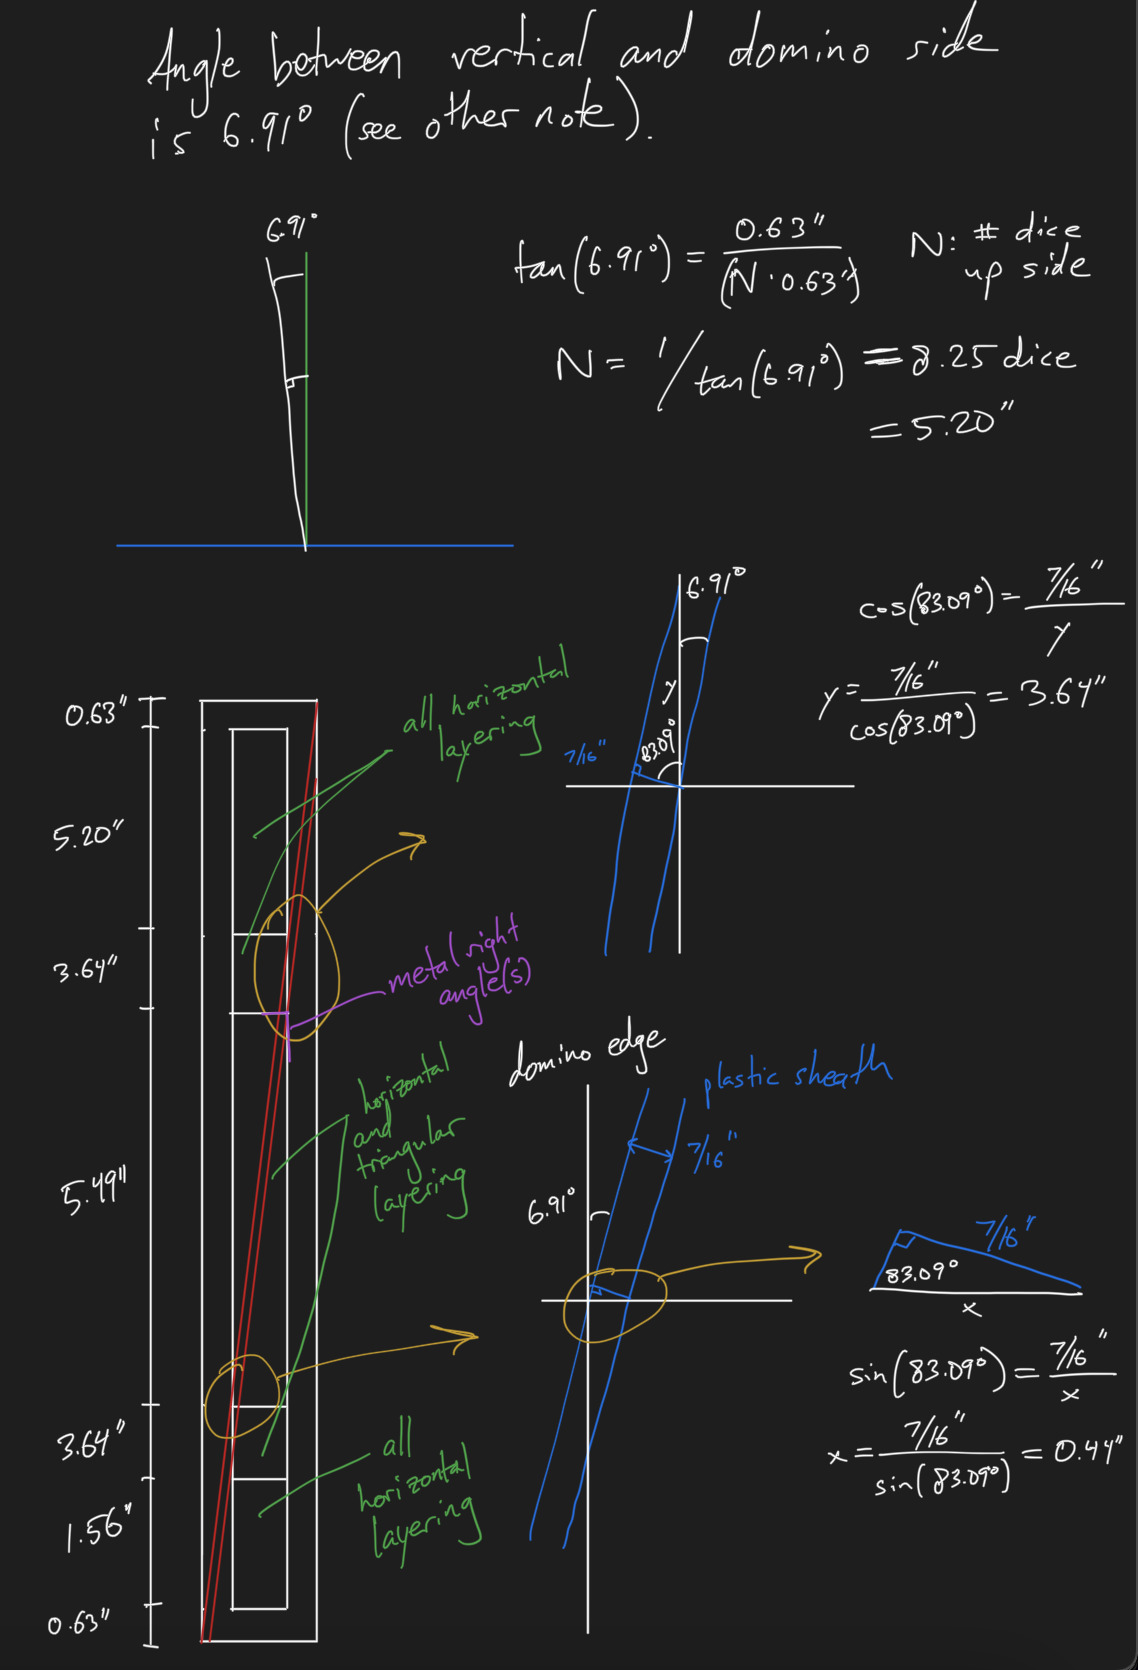 Angle between vertical and domino side
is 6.91° (see other note).
6.91°
tan(6.91°) = 0.63" / (N·0.63")
N: # dice
up side
N = 1/tan(6.91°) = 8.25 dice
= 5.20"
6.91°
y
83.09°
7/16"
cos(83.09°) = 7/16" / y
y = 7/16" / cos(83.09°) = 3.64"
0.63"
5.20"
3.64"
5.49"
3.64"
1.56"
0.63"
all horizontal
layering
metal right
angle(s)
horizontal
and
triangular
layering
all
horizontal
layering
domino edge
plastic sheath
7/16"
6.91°
7/16"
83.09°
x
sin(83.09°) = 7/16" / x
x = 7/16" / sin(83.09°) = 0.44"